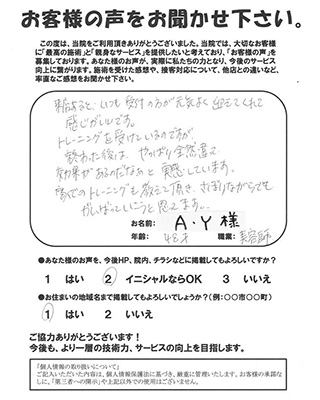 お客様の声をお聞かせ下さい。
この度は、当院をご利用頂きありがとうございました。当院では、大切なお客様
に「最高の施術」と「親身なサービス」を提供したいと考えており、「お客様の声」を
募集しております。あなた様のお声が、実際に私たちの力となり、今後のサービス
向上に繋がります。施術を受けた感想や、接客対応について、他店との違いなど、
率直なご感想をお聞かせ下さい。
来院すると、いつも受付の方が元気よく迎えてくれて
感じがいいです。
トレーニングを受けているのですが
終わった後は、やっぱり全然違って
効果があるのだなぁと実感しています。
家でのトレーニングも教えて頂き、さぼりながらでも
がんばっていこうと思ってます。
お名前: A・Y 様
年齢: 42才 職業: 美容師
●あなた様のお声を、今後HP、院内、チラシなどに掲載してもよろしいですか?
1 はい 2 イニシャルならOK 3 いいえ
●お住まいの地域名まで掲載してもよろしいでしょうか?(例:○○市○○町)
1 はい 2 いいえ
ご協力ありがとうございます!
今後も、より一層の技術力、サービスの向上を目指します。
「個人情報の取り扱いについて」
ご記入いただいた内容は、個人情報保護法に基づき、厳重に管理いたします。お客様の承諾な
しに、「第三者への開示」や上記以外での使用はございません。